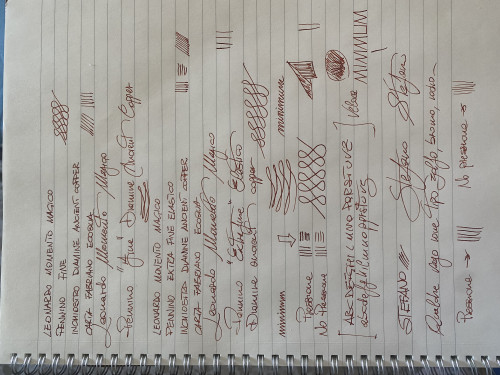 LEONARDO MOMENTO MAGICO
PENNINO FINE
INCHIOSTRO DIAMINE ANCIENT COPPER
CARTA FABRIANO ECOQUA
Leonardo Momento Magico
Pennino "Fine" Diamine Ancient Copper
LEONARDO MOMENTO MAGICO
PENNINO EXTRA FINE ELASTICO
INCHIOSTRO DIAMINE ANCIENT COPPER
CARTA FABRIANO ECOQUA
Leonardo Momento Magico
Pennino "Extra Fine" Elastico
Diamine ancient copper
minimum minimum
Pressione
No Pressione
Veloce
MINIMUM
STEFANO Stefano Stefano
No pressione →
Pressione →